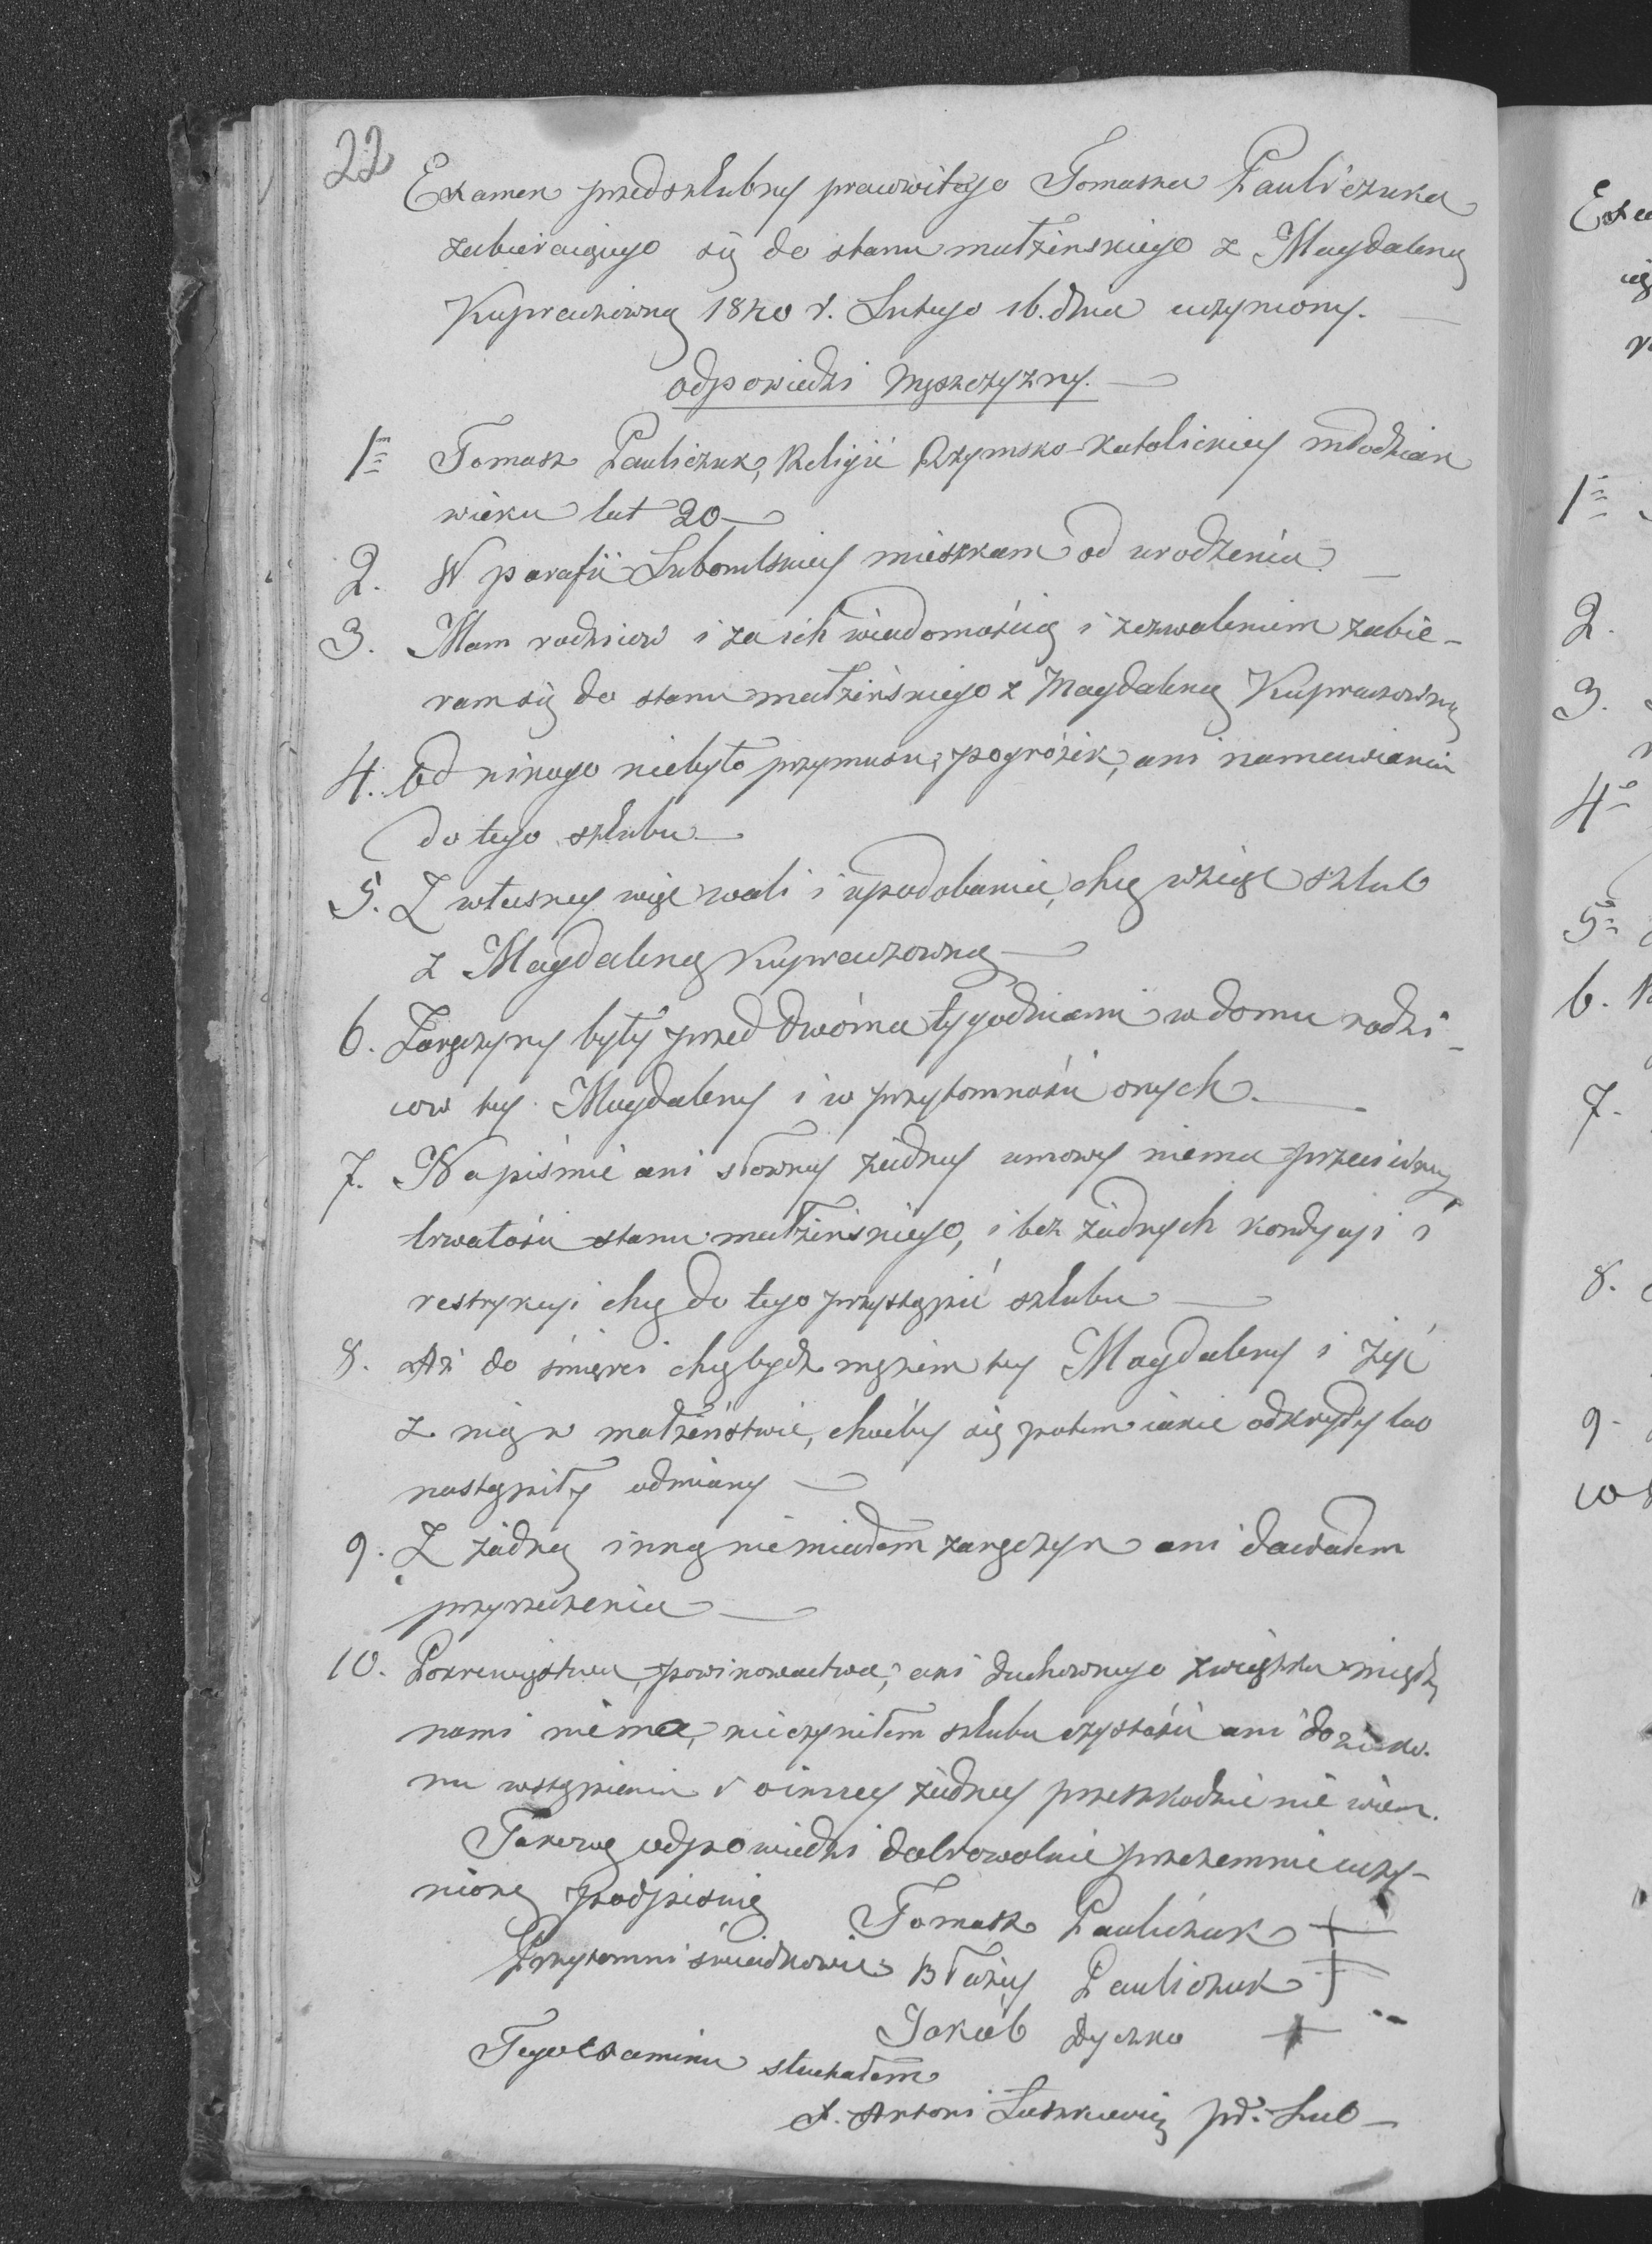 22
Examen przedszlubny pracowitego Tomasza Pauliczuka
zabieraiącego się do stanu małżenskiego z Magdaleną
Kupraczowną 1840 r. Lutego 16. dnia uczyniony.
odpowiedzi Męszczyzny.
1m Tomasz Pauliczuk, Religii Rzymsko-Katolickiey młodzian
wieku lat 20
2. W parafii Lubomlskiey mieszkam od urodzenia
3. Mam rodziców i za ich wiadomością i zezwoleniem zabie-
ram się do stanu małżeńskiego z Magdaleną Kupraczowną
4. Od nikogo niebyło przymusu, pogróżek, ani namawiania
do tego szlubu
5. Z własney więc woli i upodobania, chcę wziąść szlub
z Magdaleną Kupraczowną
6. Zaręczyny były przed dwóma tygodniami w domu rodzi-
cow tey Magdaleny i w przytomności onych.
7. Na piśmie ani słowney żadney umowy niema przeciwney
trwałości stanu małżeńskiego, i bez żadnych kondycyi i
restrykcyi chcę do tego przystąpić szlubu
8. Aż do śmierci chcę bydź mężem tey Magdaleny i żyć
z nią w małżeństwie, choćby się potem iakie odkryły lub
nastąpiły odmiany
9. Z żadną inną niemiałem zaręczyn ani dawałem
przyrzeczenia
10. Pokrewięstwa, powinowactwa, ani duchownego związku między
nami niema, nieczyniłem szlubu czystości ani do zako-
nu wstąpienia i o inszey żadney przeszkodzie nie wiem.
Takową odpowiedzi dobrowolnie przezemnie uczy-
nioną podpisuię Tomasz Pauliczuk +
Przytomni świadkowie Błażey Pauliczuk +
Jakób Dyczko +
Tego Examinu słuchałem
X. Antoni Luszkiewicz pr. Lub
Exa
1m
2.
3.
4o
5o
6.
7.
8.
9.
10